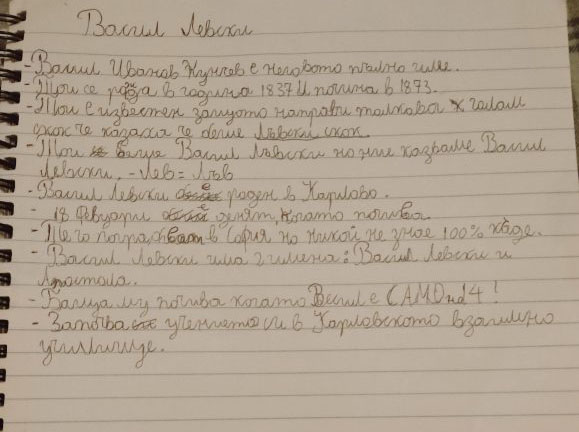 Васил Левски
- Васил Иванов Кунчев е неговото пълно име.
- Той се ражда в година 1837 и почина в 1873.
- Той е известен защото направи толкова голям
скок че казаха че беше Лъвски скок.
- Той беше Васил Лъвски но ние казваме Васил
Левски. - Лев = Лъв
- Васил Левски е роден в Карлово.
- 18 Февуари е денят, когато почива.
- Него погребват в София но никой не знае 100% къде.
- Васил Левски има 2 имена: Васил Левски и
Апостола.
- Баща му почива когато Васил е САМО на 14!
- Започва учението си в Карловското взаимно
училище.